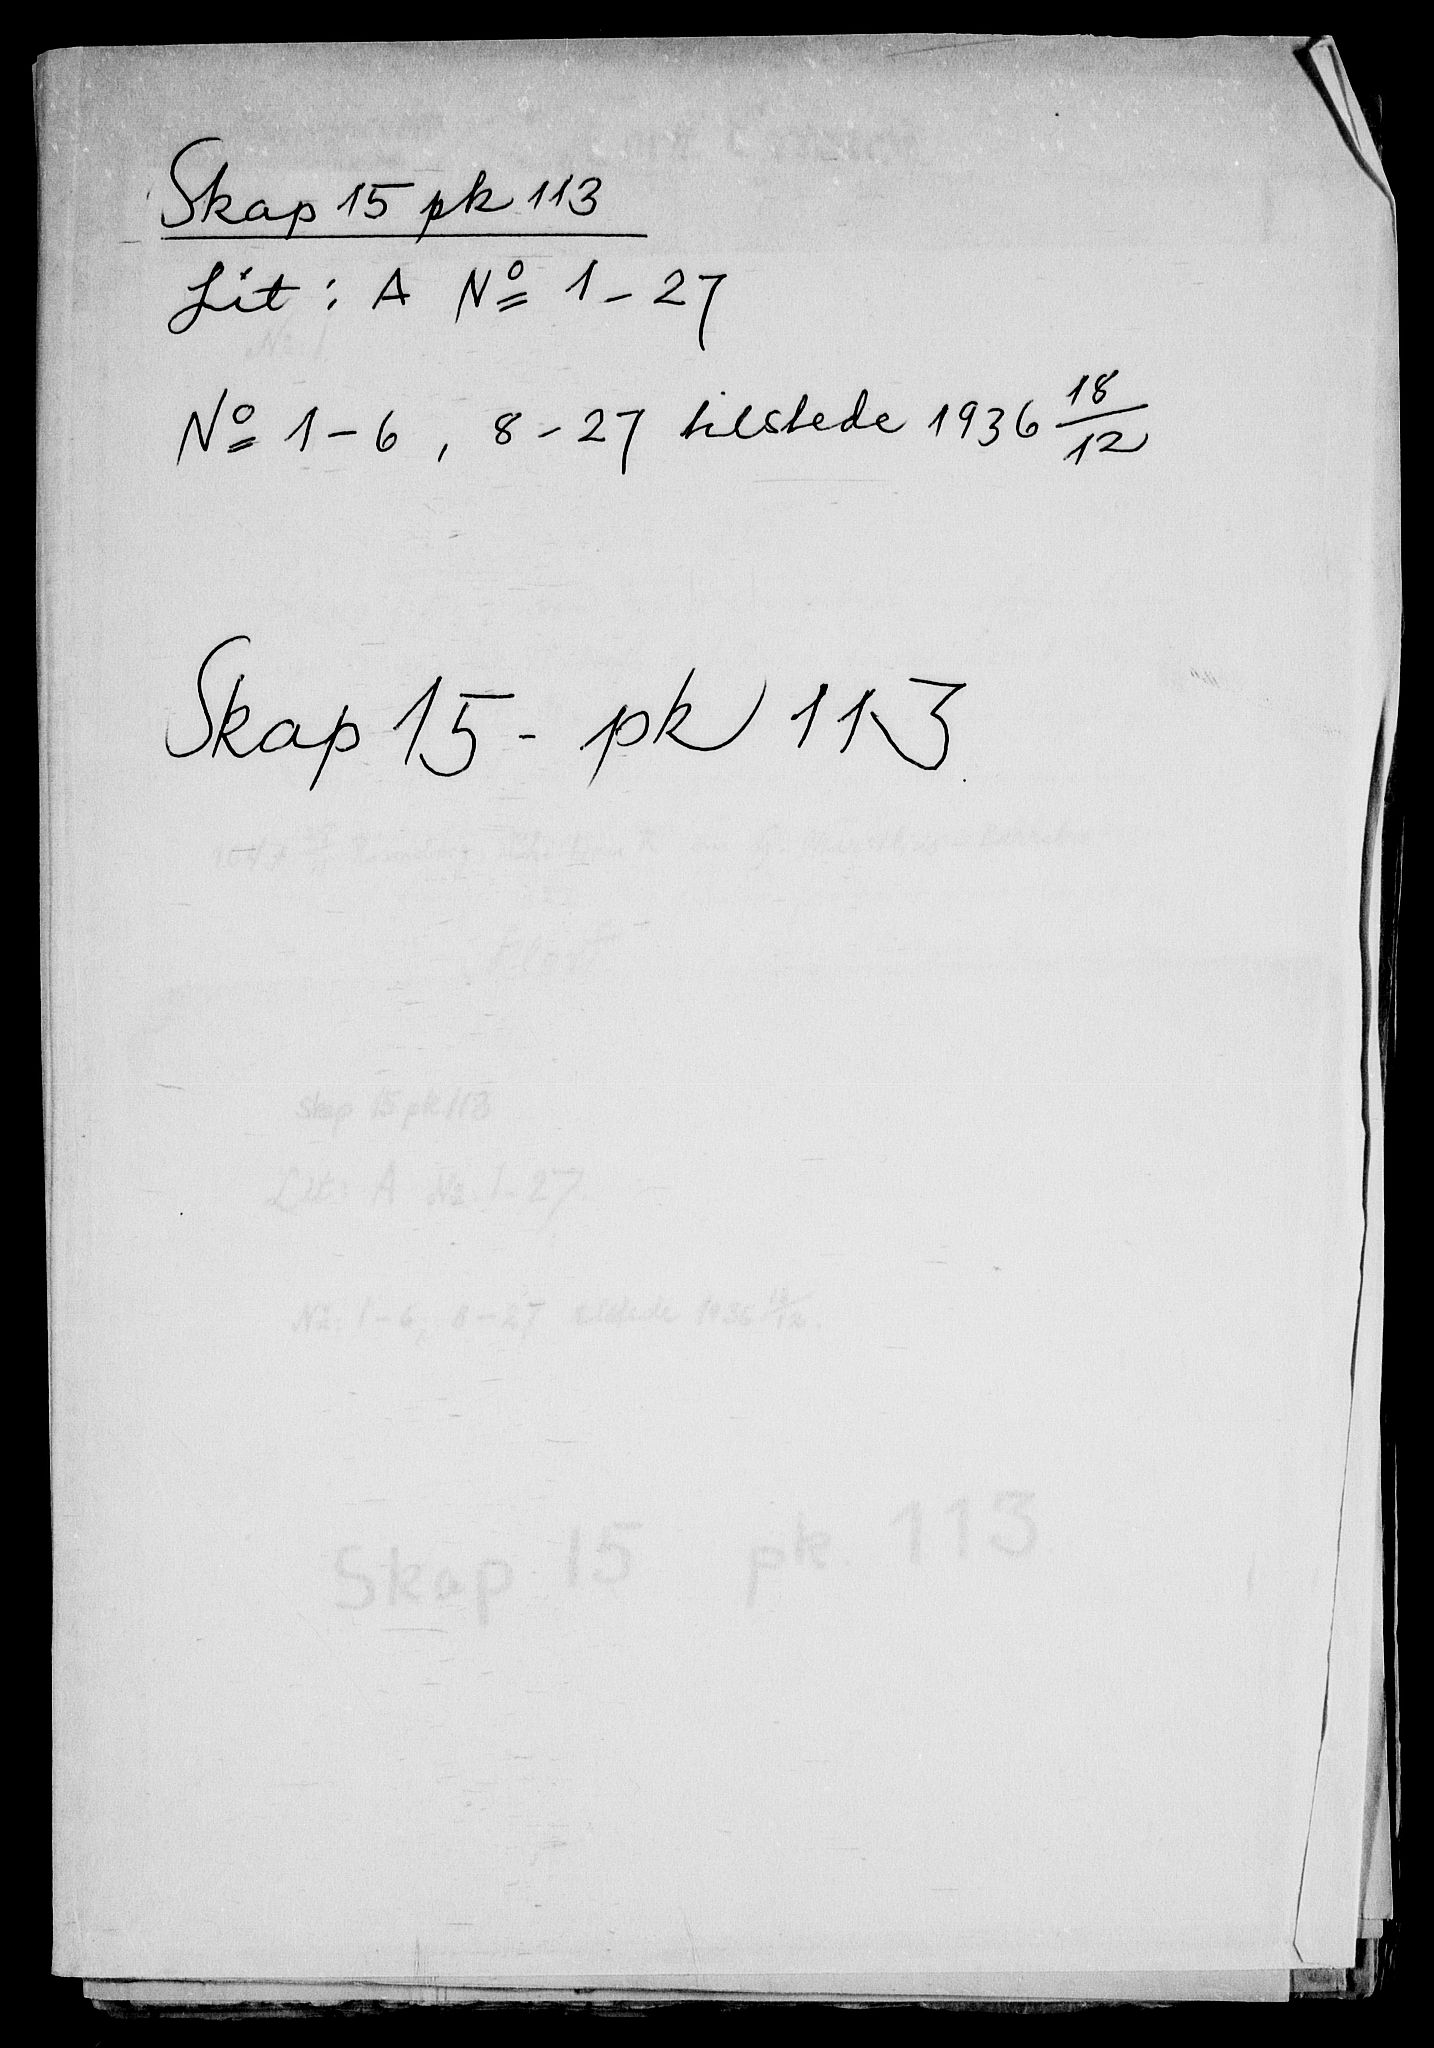 Skap 15 pk 113
Lit: A Nº 1-27
Nº 1-6, 8-27 tilstede 1936 18/12
Skap 15 - pk 113
Skap 15 pk 113
Lit: A Nº 1-27.
Nº 1-6, 8-27 tilstede 1936 18/12.
Skap 15 pk. 113